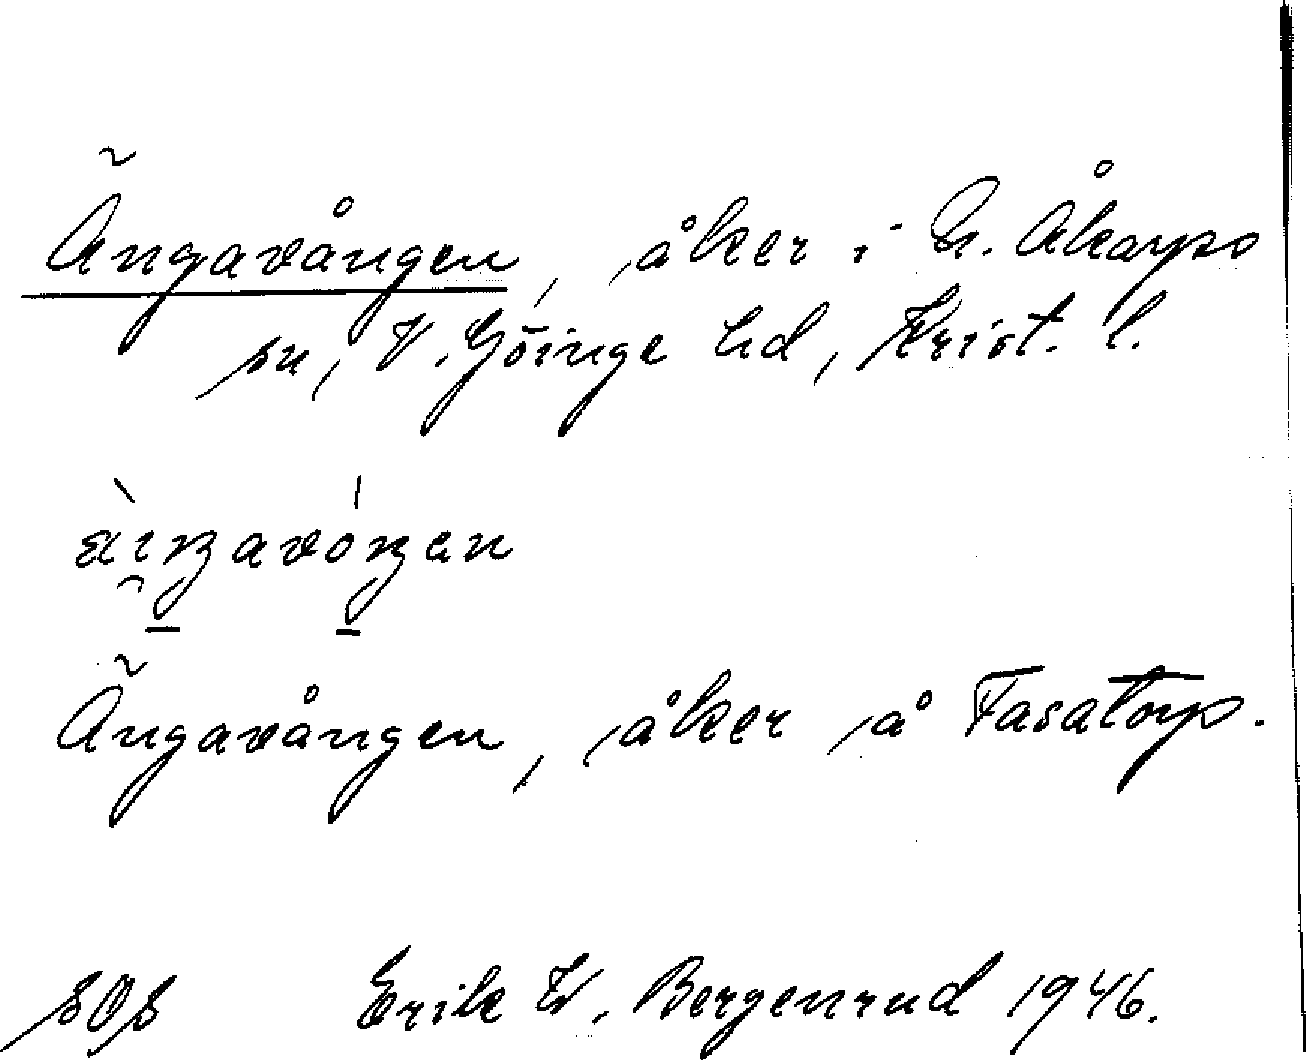 Ängavången, åker i N. Åkarps
sn, V. Göinge hd, Krist. l.
Ängavången, åker å Fasatorp.
SOS Erik W. Bergenrud 1946.